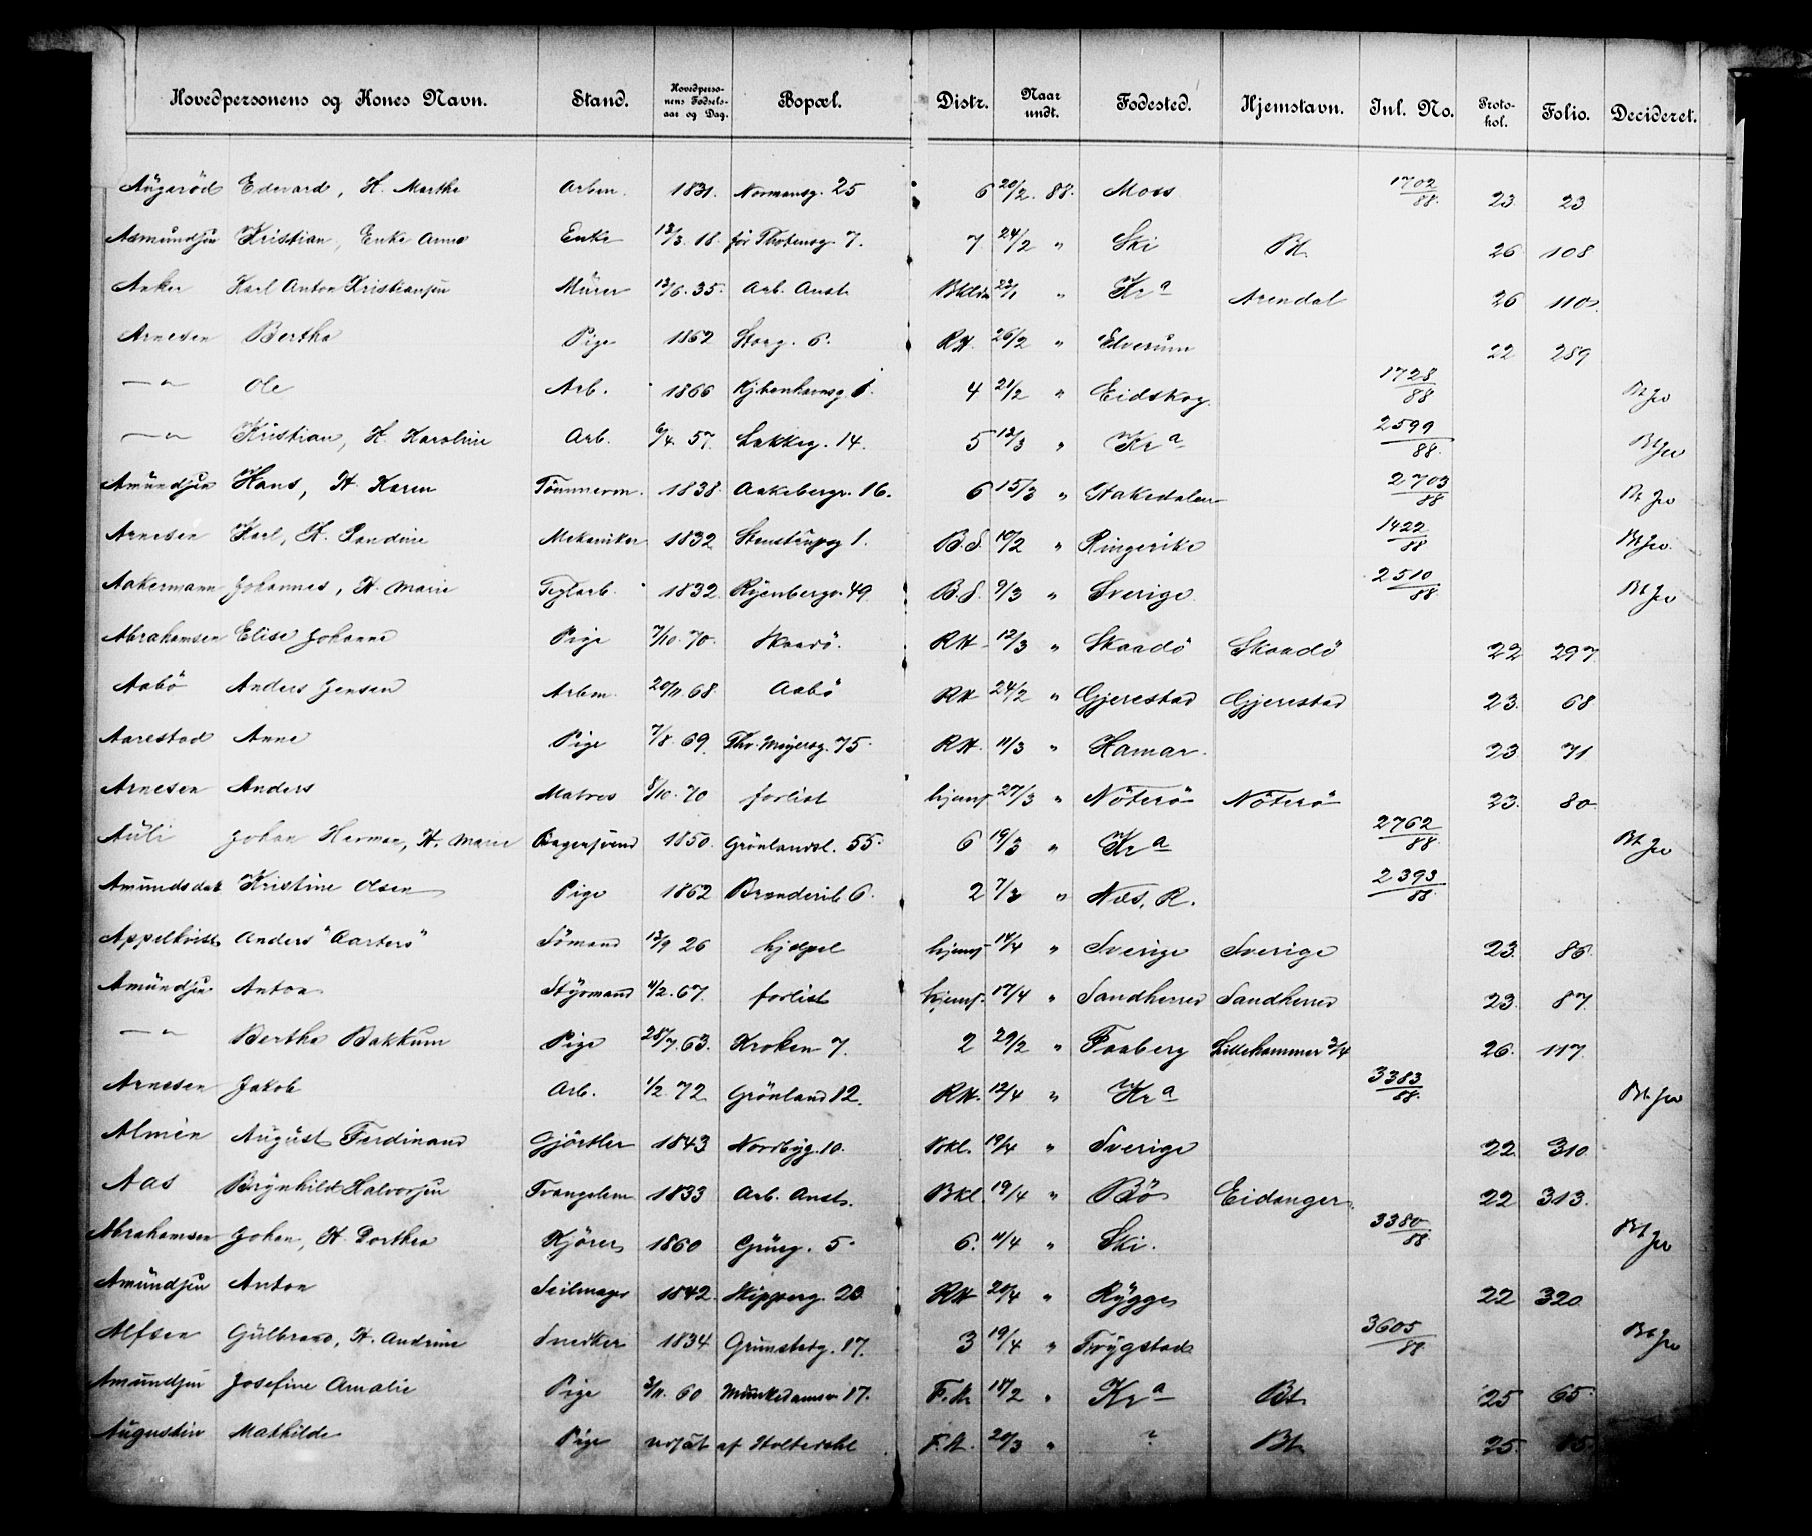 Hovedpersonens og Kones Navn. Stand. Hovedpersonens Fødselsaar og Dag. Bopæl. Distr. Naar undt. Fødested. Hjemstavn. Jnl. No. Protokol. Folio. Decideret.
Augarød Edevard, H. Marthe Arbm. 1831. Normansg. 25 6 20/2 88. Moss 1702/88. 23. 23
Asmundsen Kristian, Enke Anne Enke 13/3. 18. for Thotensg. 7. 7 24/2 " Ski Bt. 26 108
Anker Karl Anton Kristiansen Murer 13/6. 35. Arb. Anst. 23/1 " Kra Arendal 26 110.
Arnesen Bertha Pige 1862 Storg. 6. RH. 26/2 " Elverum 22 289
— " Ole Arb. 1866 Kjbenhavnsg. 1. 4 21/2 " Eidskog. 1728/88 Bt Jev
— " Kristian, H. Karoline Arb. 6/4. 57. Lakkeg. 14. 5 13/3 " Kra 2599/88. Bt Jev
Amundsen Hans, H. Karen Tömmerm. 1838. Aakebergv. 16. 6 15/3 " Hakedalen 2703/88 Bt Jev
Arnesen Karl, H. Pandine Mekaniker 1832 Stenstrupg 1. B.S. 10/2 " Ringerike 1422/88 Bt Jev.
Aakermann Johannes, H. Marie Teglarb. 1832 Ryenbergv. 49. B.S. 9/3 " Sverige 2510/88 Bt Jev
Abrahamsen Elise Johanne Pige 7/10. 70. Skaadö. RH. 12/3 " Skaadö Skaadö 22 297
Aabö Anders Jensen Arbm. 20/11. 68. Aabö RH 24/2 " Gjerestad Gjerestad 23. 68
Aarestad Anne Pige 7/8. 69. Thv. Meyersg. 75. RH. 11/3 " Hamar. 23. 71
Arnesen Anders Matros 8/10. 70 forlist hjemf. 27/3 " Nöterö Nöterö 23. 80.
Auli Johan Herman, H. Marie 1850. Grönlandsl. 55. 6 19/3 " Kra 2762/88. Bt Jev
Amundsdat. Kristine Olsen Pige 1862 6. 2 7/3 " Næs, R. 2393/88.
Anders "Aarters" Sömand 13/9 26 hjemf. 14/4 " Sverige Sverige 23. 86.
Amundsen Anton Styrmand 11/2. 67. forlist hjemf. 17/4 " Sandherred Sandherred 23. 87.
— " Berthe Bakkum Pige 28/7. 63. Kroken 7. 2 29/2 " Faaberg Lillehammer 3/4 26. 117.
Arnesen Jakob Arb. 1/2. 72 Grönland 12. RH. 12/4 " Kra 3383/88. Bt Jev
Almèn August Ferdinand Gjörtler 1843 Nordbyg. 10. Bkl. 19/4 " Sverige 22. 310.
Aas Brynhild Halvorsen Tvangslem 1833 Arb. Anst. Bkl. 19/4 " Bö Eidanger. 22 313.
Abrahamsen Johan, H. Dorthea Kjörer 1860 Grüg. 5. 6. 11/4 " Ski. 3380/88. Bt Jev
Amundsen Anton Seilmager 1842. Skipperg. 20. RH 20/4 " Rygge 22 320.
Alfsen Gulbrand, H. Andrine Snedker 1834 17. 3 19/4 " Trygstad 3605/88. Bt Jev
Amundsen Josefine Amalie Pige 3/11. 60 Munkedamsv. 17. F.A. 18/2 " Kra Bt. 25 65.
Augustin Mathilde Pige udsat af Holtedahl F.A. 20/3 " ? Bt. 25.